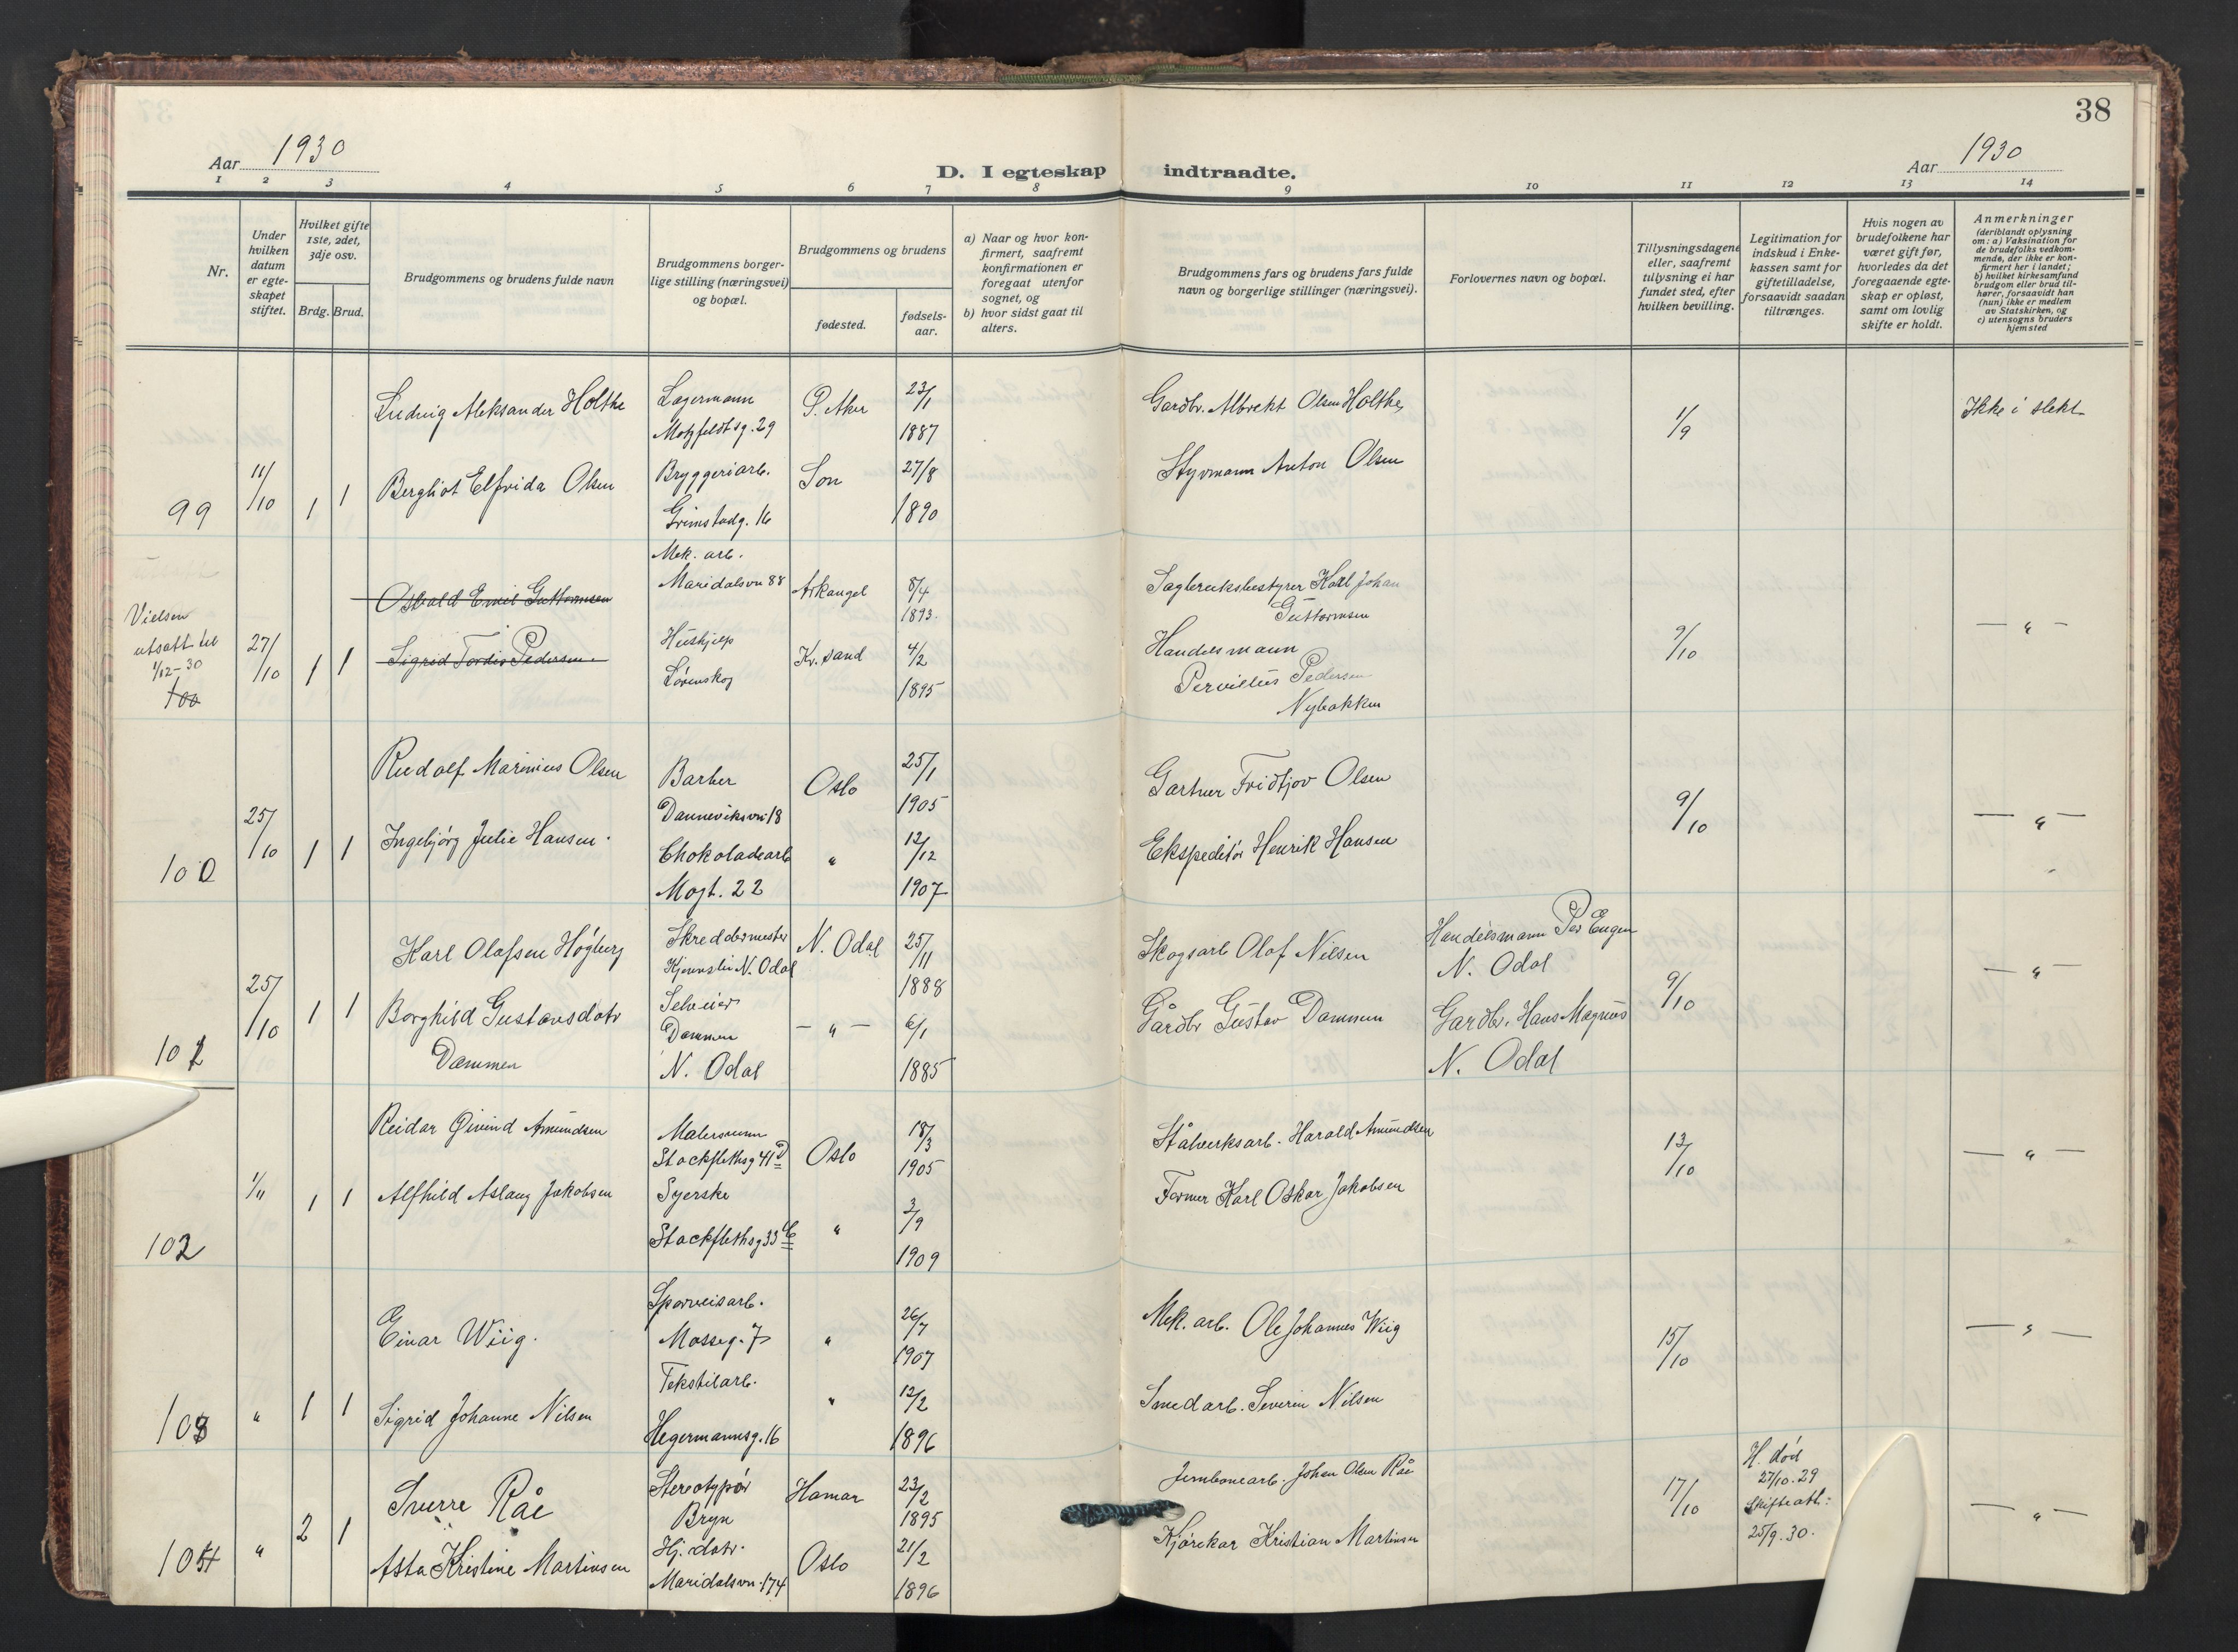 38
Aar 1930
Aar 1930
D. I egteskap indtraadte.
1 2 3 4 5 6 7 8 9 10 11 12 13 14
Nr.
Under hvilken datum er egteskapet stiftet.
Hvilket gifte 1ste, 2det, 3dje osv.
Brdg. Brud.
Brudgommens og brudens fulde navn
Brudgommens borgerlige stilling (næringsvei) og bopæl.
Brudgommens og brudens
fødested.
fødselsaar.
a) Naar og hvor konfirmert, saafremt konfirmationen er foregaat utenfor sognet, og
b) hvor sidst gaat til alters.
Brudgommens fars og brudens fars fulde navn og borgerlige stillinger (næringsvei).
Forlovernes navn og bopæl.
Tillysningsdagene eller, saafremt tillysning ei har fundet sted, efter hvilken bevilling.
Legitimation for indskud i Enkekassen samt for giftetilladelse, forsaavidt saadan tiltrænges.
Hvis nogen av brudefolkene har været gift før, hvorledes da det foregaaende egteskap er opløst, samt om lovlig skifte er holdt.
Anmerkninger
(deriblandt oplysning om: a) Vaksination for de brudefolks vedkommende, der ikke er konfirmert her i landet;
b) hvilket kirkesamfund brudgom eller brud tilhører, forsaavidt han (hun) ikke er medlem av Statskirken, og
c) utensogns bruders hjemsted
99 11/10 1 1
Ludvig Aleksander Holthe
Lagermann
Motzfeldtsg. 29
Ø. Aker
23/1 1887
Gardbr. Albrekt Olsen Holthe
1/9
Ikke i slekt
Bergliot Elfrida Olsen
Bryggeriarb.
Grimstadg. 16
Son
27/8 1890
Styrmann Anton Olsen
Vielsen utsatt til 1/12-30
100 27/10 1 1
Osvald Emil Guttormsen
Mek. arb.
Maridalsvn 88
Arkangel
8/4 1893.
Sagbruksbestyrer Karl Johan
Guttormsen
9/10
— " —
Sigrid Tordis Pedersen.
Hushjelp
Lørenskog
Kr. sand
4/2 1895
Handelsmann
Pedersen
Nybakken
100 25/10 1 1
Rudolf Marinius Olsen
Barber
Danneviksvn 18
Oslo
25/1 1905
Gartner Fridtjov Olsen
9/10
— " —
Ingebjørg Julie Hansen.
Chokoladearb
Mogt. 22
"
12/12 1907
Ekspeditør Henrik Hansen
101 25/10 1 1
Karl Olafsen Høgberg
Skreddermester
N. Odal
N. Odal
25/11 1888
Skogsarb Olaf Nilsen
Handelsmann Per Engen
N. Odal
9/10
— " —
Borghild Gustavsdatr
Dammen
Selveier
Dammen
N. Odal
— " —
6/1 1885
Gårdbr Gustav Dammen
Gardbr. Hans Magnus
N. Odal
102 1/11 1 1
Reidar Øivind Amundsen
Malersvenn
Stockflethsg 41 D
Oslo
18/3 1905
Stålverksarb. Harald Amundsen
13/10
— " —
Alfhild Aslaug Jakobsen
Syerske
Stockflethsg 33
"
3/9 1909
Former Karl Oskar Jakobsen
103 " 1 1
Einar Wiig.
Sporveisarb.
Mosseg. 7
"
26/7 1907
Mek. arb. Ole Johannes Wiig
15/10
— " —
Sigrid Johanne Nilsen
Tekstilarb.
Hegermannsg. 16
"
12/2 1896
Smedarb. Severin Nilsen
104 " 2 1
Sverre Råe
Stereotypør
Bryn
Hamar
23/2 1895
Jernbanearb. Johan Olsen Råe
17/10
H. død
27/10.29
Skifteatt:
25/9.30.
— " —
Asta Kristine Martinsen
Hj. datr.
Maridalsvn. 174
Oslo
21/2 1896
Kjørekar Kristian Martinsen